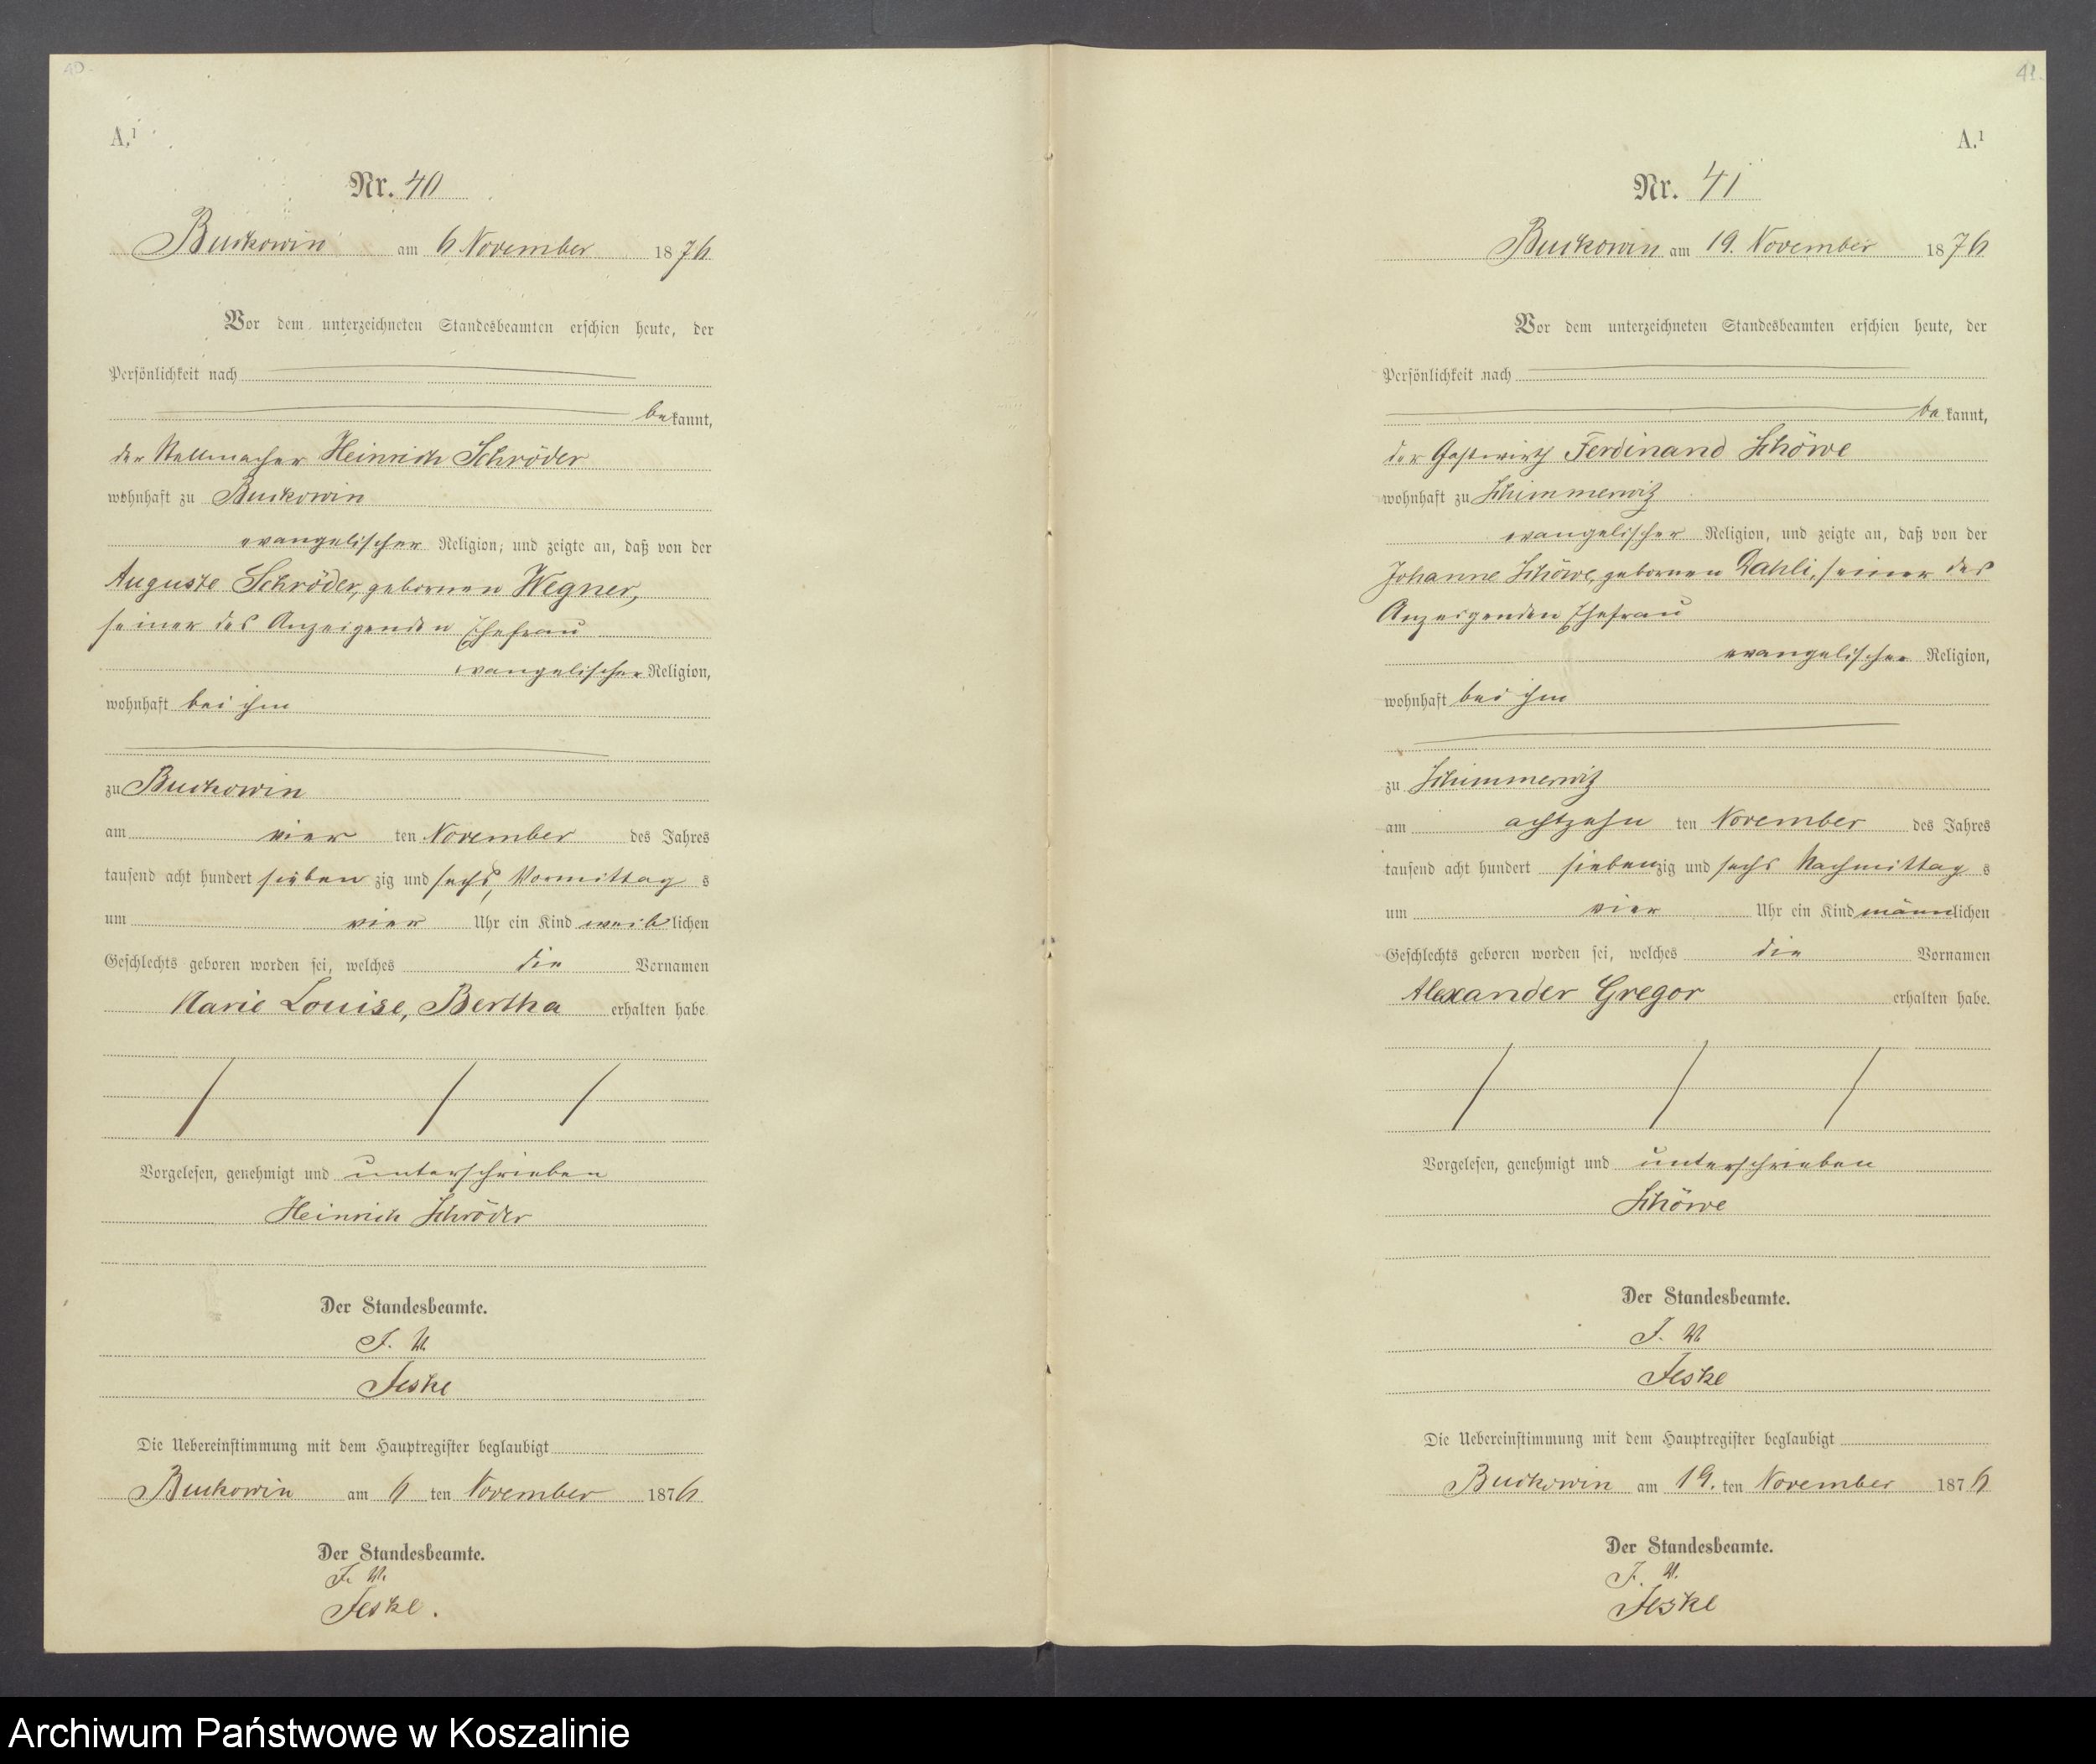 40.
A.¹
Nr. 40
Buckowin am 6 November 1876
Vor dem unterzeichneten Standesbeamten erschien heute, der
Persönlichkeit nach
bekannt,
der Stellmacher Heinrich Schröder
wohnhaft zu Buckowin
evangelischer Religion, und zeigte an, daß von der
Auguste Schröder, gebornen Wegner,
seiner des Anzeigenden Ehefrau
evangelischer Religion,
wohnhaft bei ihm
zu Buckowin
am vier ten November des Jahres
tausend acht hundert sieben zig und sechs, Vormittag s
um vier Uhr ein Kind weiblichen
Geschlechts geboren worden sei, welches die Vornamen
Marie Louise, Bertha erhalten habe
Vorgelesen, genehmigt und unterschrieben
Heinrich Schröder
Der Standesbeamte.
J. V.
Jeske
Die Uebereinstimmung mit dem Hauptregister beglaubigt
Buckowin am 6 ten November 1876
Der Standesbeamte.
J. V.
Jeske.
41.
A.¹
Nr. 41
Buckowin am 19. November 1876
Vor dem unterzeichneten Standesbeamten erschien heute, der
Persönlichkeit nach
bekannt,
der Gastwirth Ferdinand Schöwe
wohnhaft zu Schimmerwitz
evangelischer Religion, und zeigte an, daß von der
Johanne Schöwe, gebornen Dahli, seiner des
Anzeigenden Ehefrau
evangelischer Religion,
wohnhaft bei ihm
zu Schimmerwitz
am achtzehn ten November des Jahres
tausend acht hundert siebenzig und sechs Nachmittag s
um vier Uhr ein Kind männlichen
Geschlechts geboren worden sei, welches die Vornamen
Alexander Gregor erhalten habe.
Vorgelesen, genehmigt und unterschrieben
Schöwe
Der Standesbeamte.
J. V.
Jeske
Die Uebereinstimmung mit dem Hauptregister beglaubigt
Buckowin am 19. ten November 1876
Der Standesbeamte.
J. V.
Jeske
Archiwum Państwowe w Koszalinie